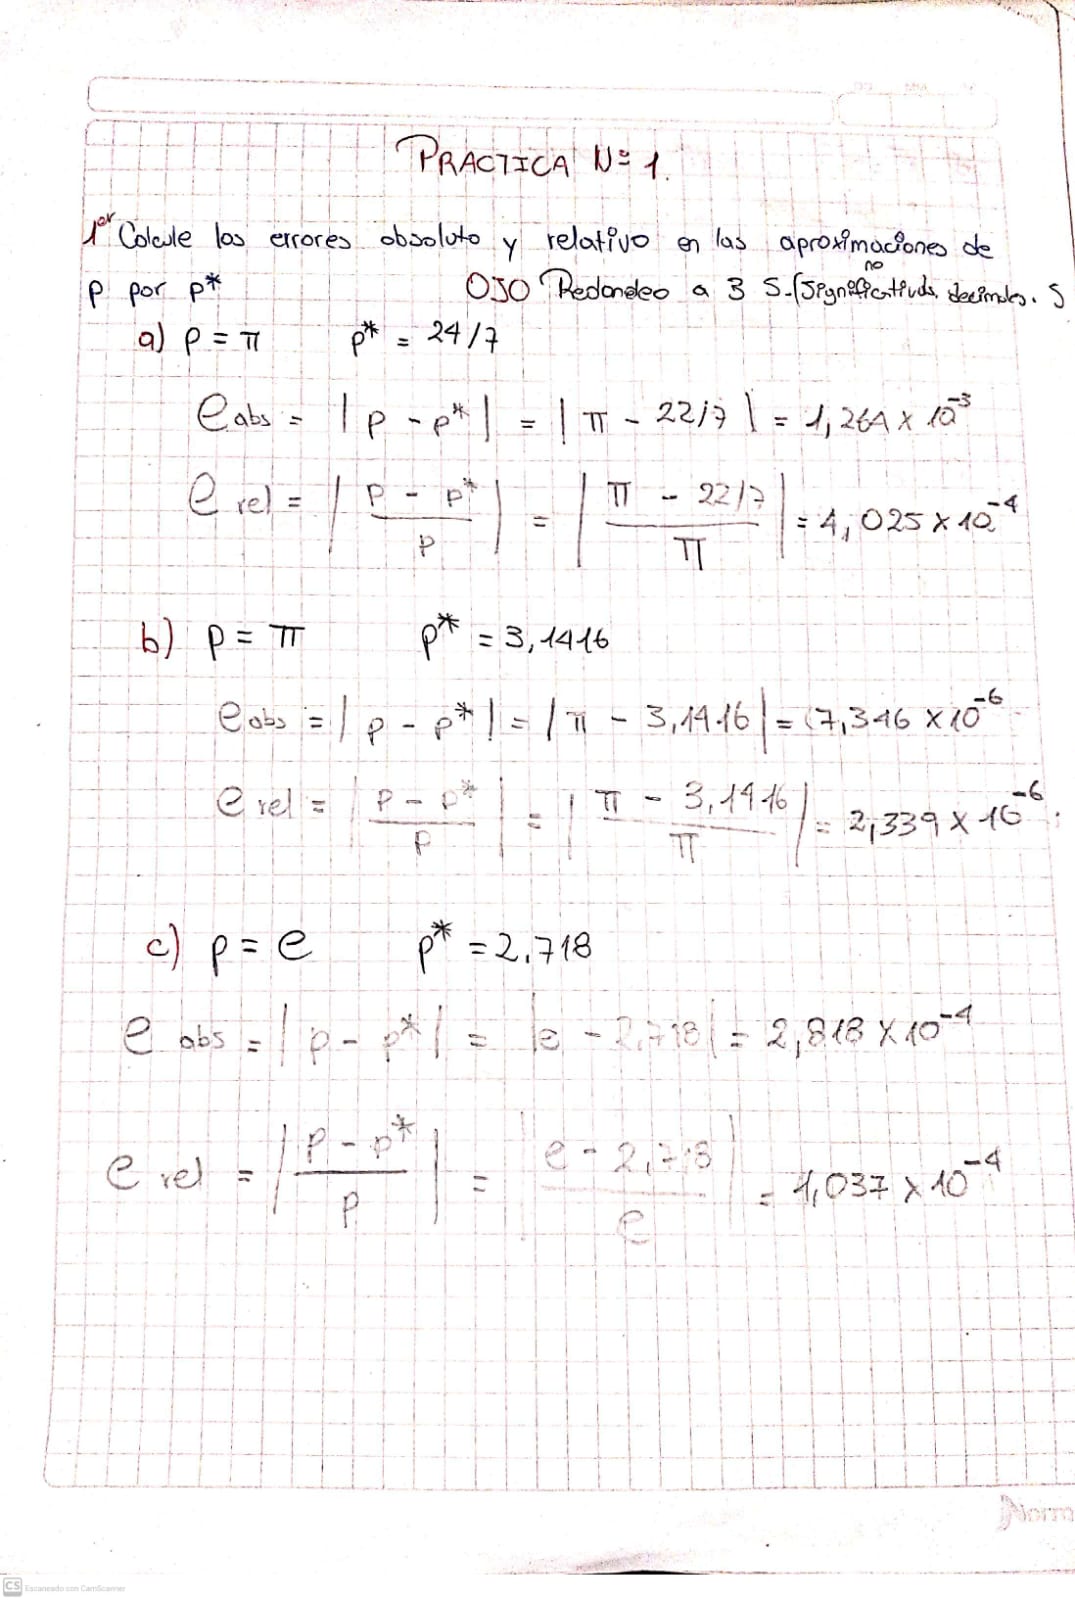 PRACTICA Nº 1.
1er Calcule los errores absoluto y relativo en las aproximaciones de
p por p* OJO Redondeo a 3 S.(Significativds. no decimales. S
a) p = π p* = 24/7
e abs = | p - p* | = | π - 22/7 | = 1,264 x 10^-3
e rel = | p - p* / p | = | π - 22/7 / π | = 4,025 x 10^-4
b) p = π p* = 3,1416
e abs = | p - p* | = | π - 3,1416 | = 7,346 x 10^-6
e rel = | p - p* / p | = | π - 3,1416 / π | = 2,339 x 10^-6
c) p = e p* = 2,718
e abs = | p - p* | = | e - 2,718 | = 2,818 x 10^-4
e rel = | p - p* / p | = | e - 2,718 / e | = 1,037 x 10^-4
Norma
CS Escaneado con CamScanner